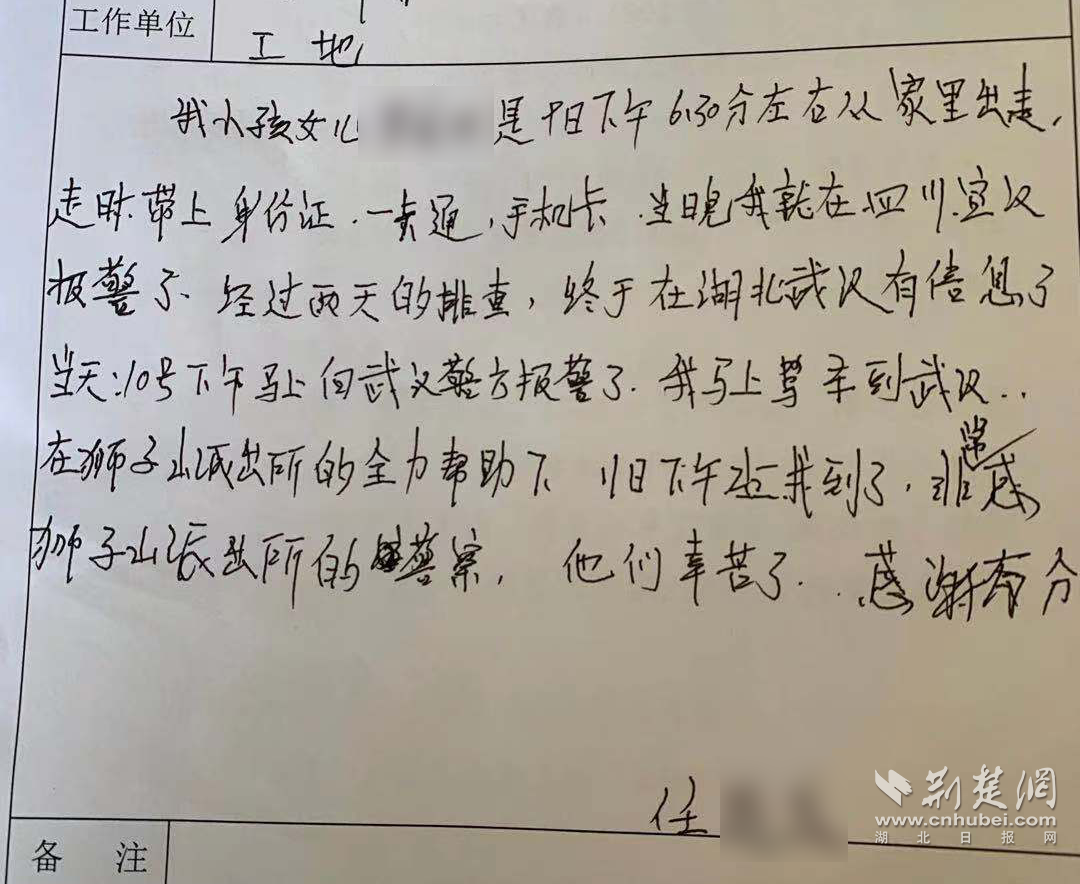 工作单位
工地
我小孩女儿 是9日下午6:30分左右从家里出走,
走时.带上身份证.一卡通,手机卡.当晚我就在四川宣汉
报警了.经过两天的排查,终于在湖北武汉有信息了
当天:10号下午马上向武汉警方报警了.我马上驾车到武汉..
在狮子山派出所的全力帮助下 11日下午 找到了.非常感
狮子山派出所的警察, 他们辛苦了...感谢 分
任
备 注
荆楚网
www.cnhubei.com
湖北日报网